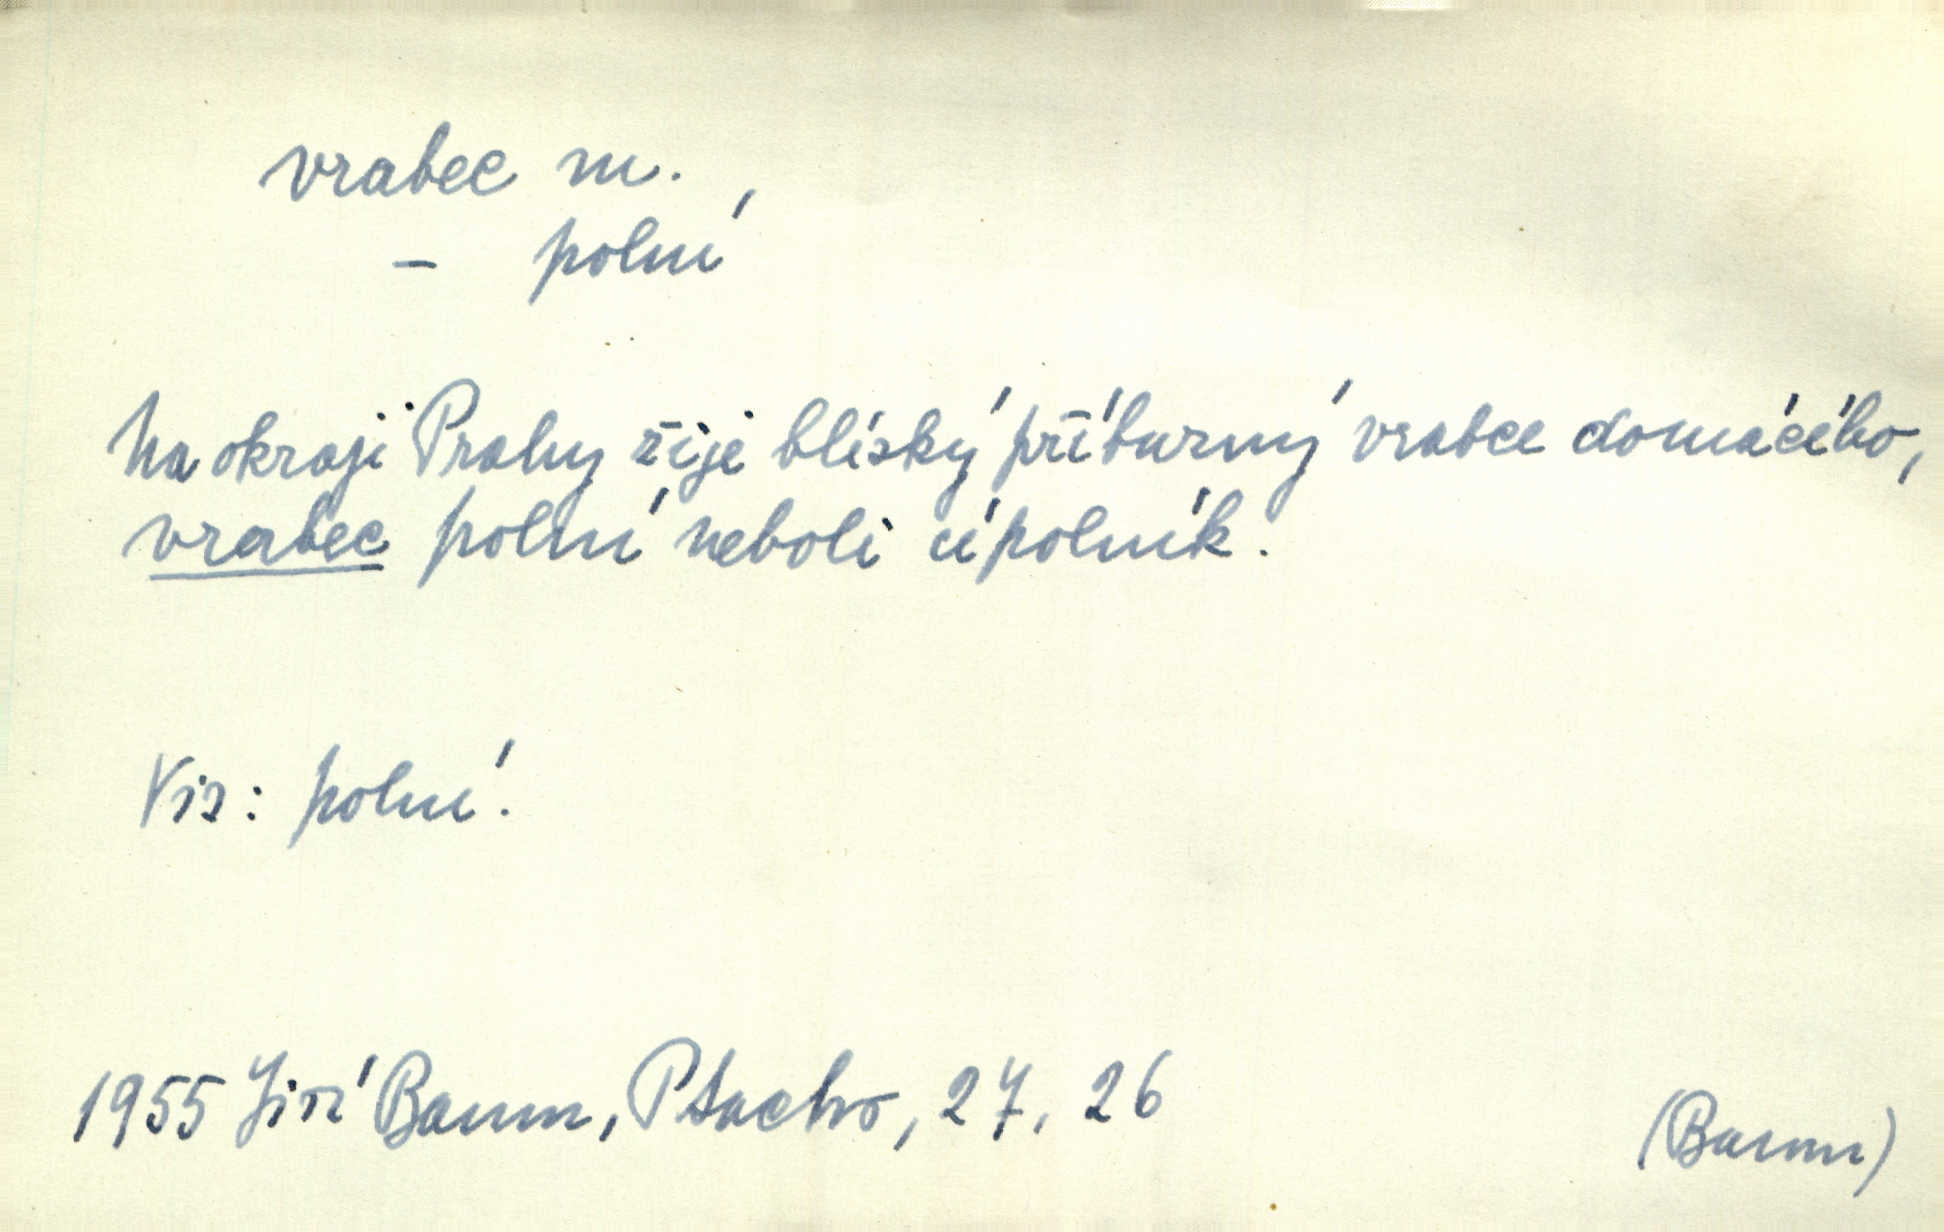 vrabec m.,
– polní
Na okraji Prahy žije blízký příbuzný vrabce domácího,
vrabec polní neboli cípolník.
Viz: polní.
1955 Jiří Baum, 27, 26
(Baum)